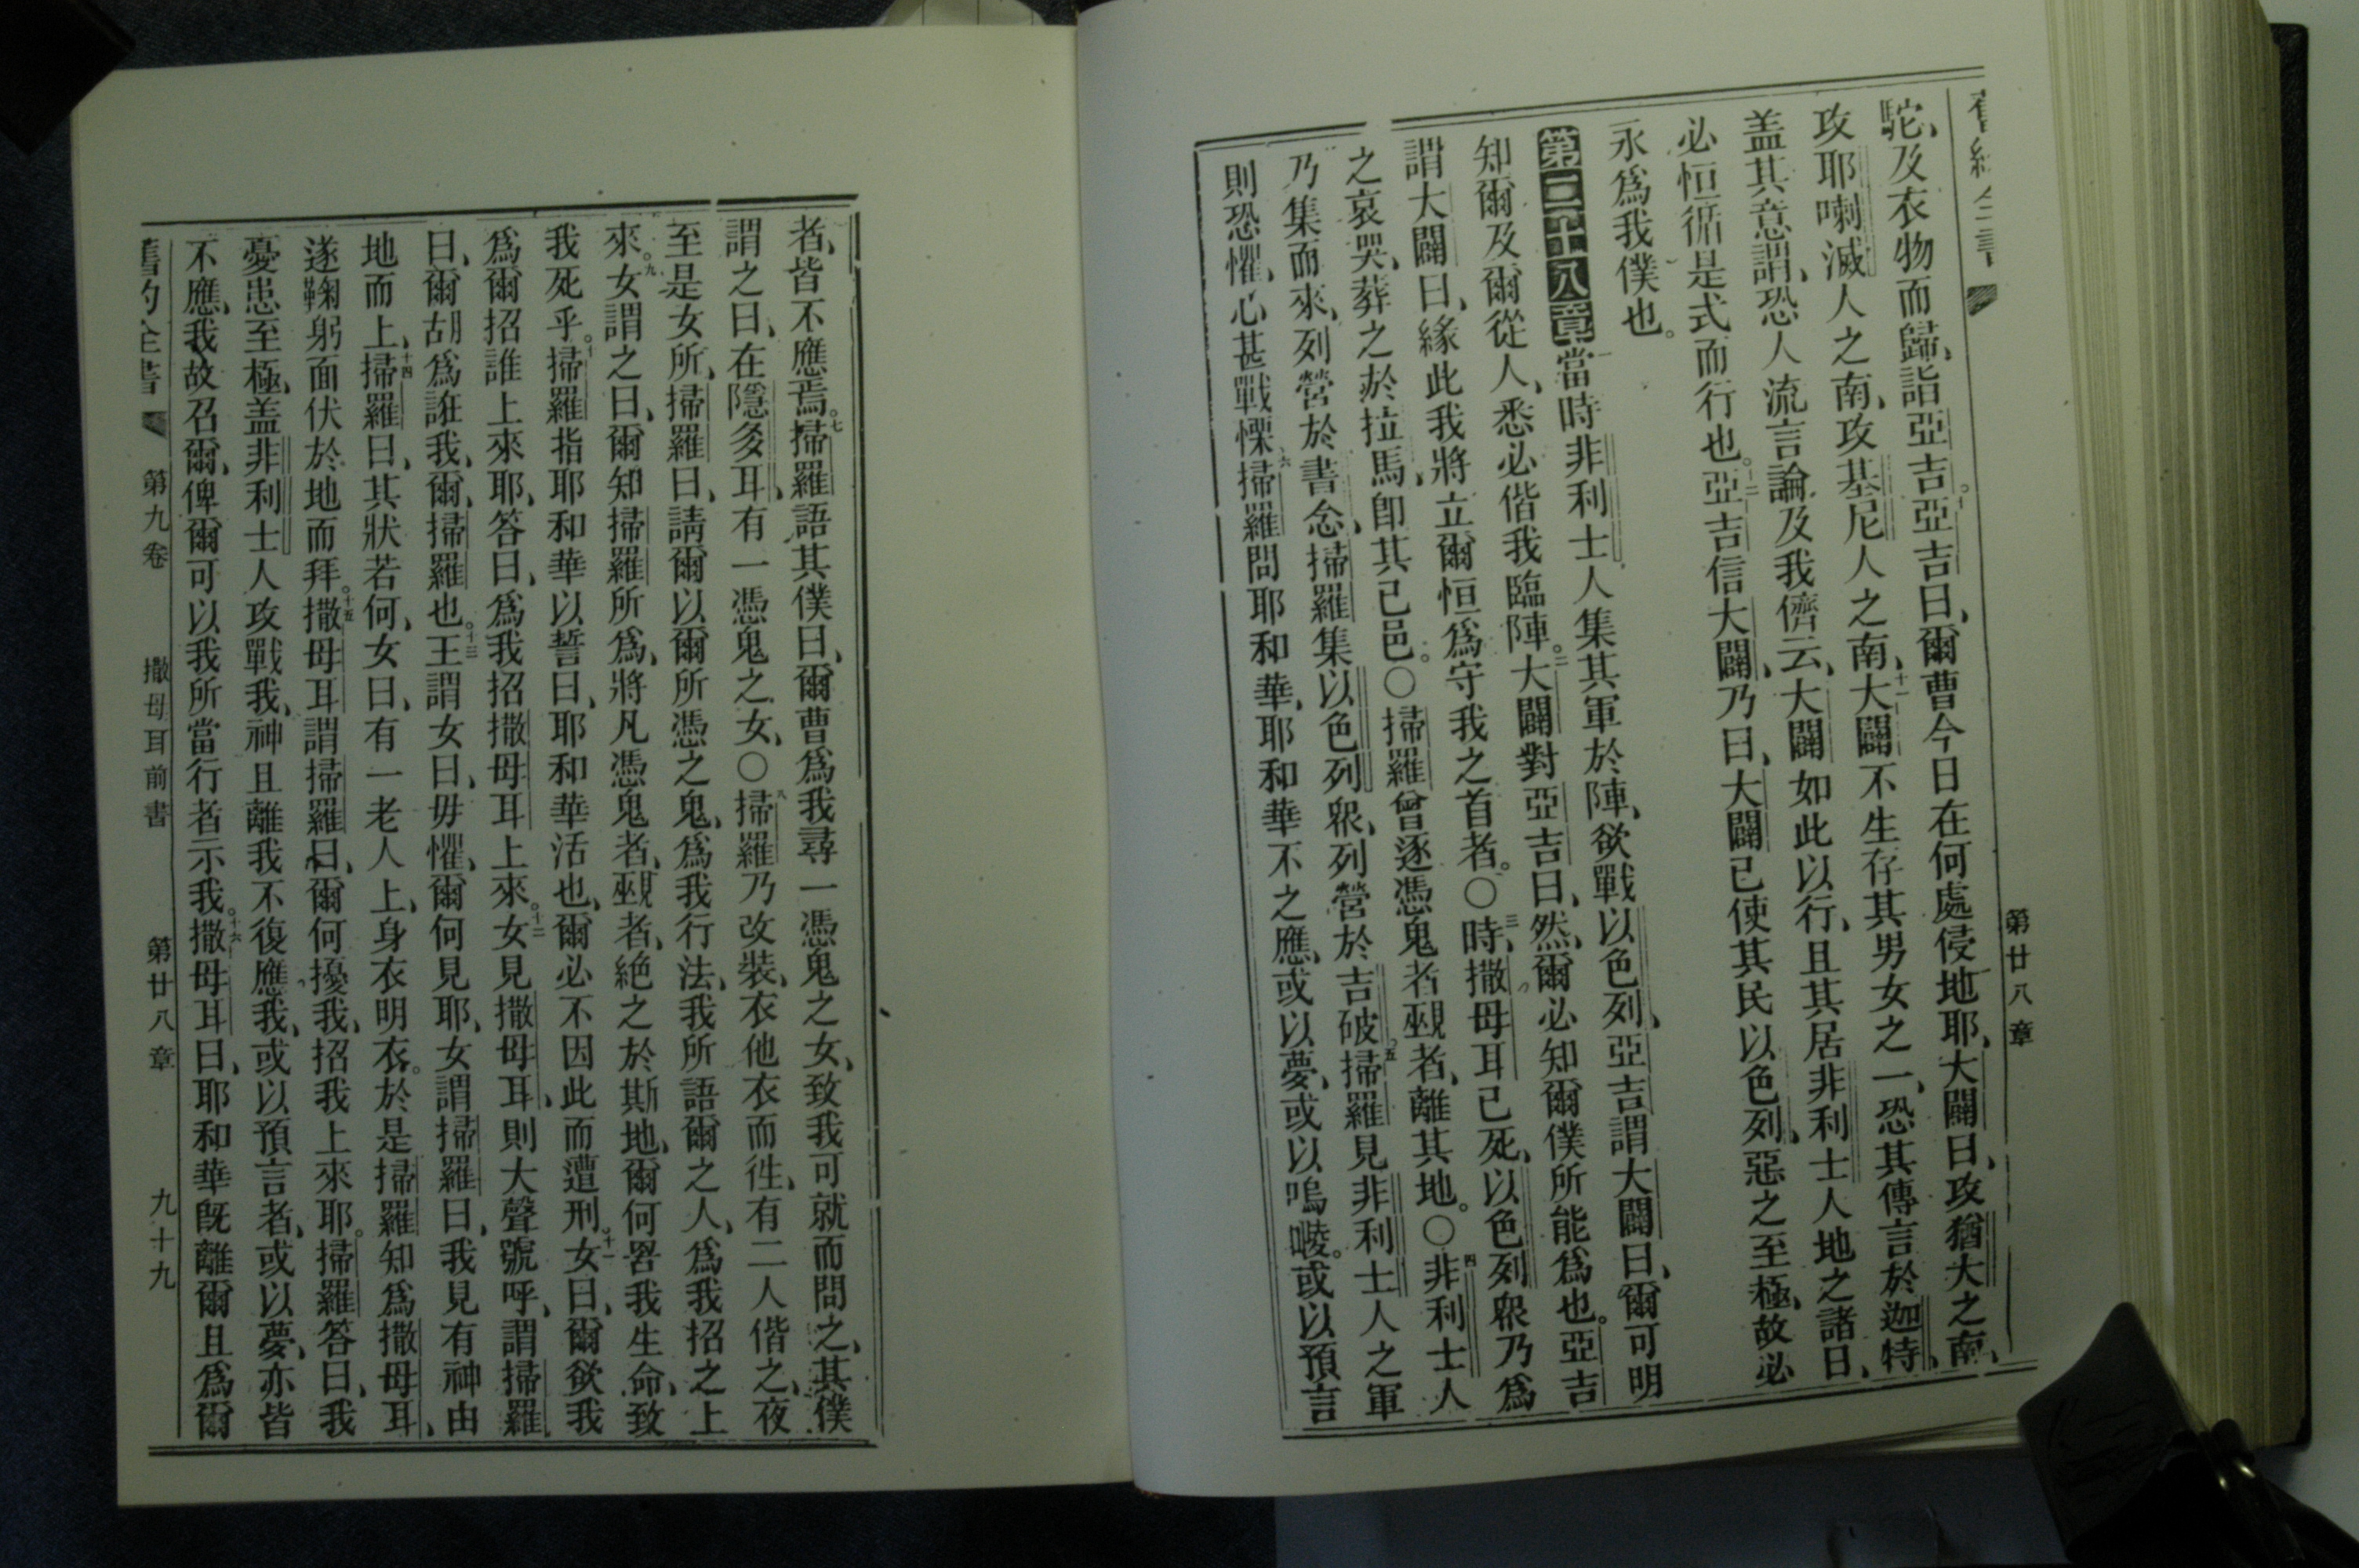 舊約全書
第廿八章
駝、及衣物而歸、詣亞吉。十亞吉曰、爾曹今日在何處侵地耶、大闢曰、攻猶大之南、
攻耶喇滅人之南、攻基尼人之南、十一大闢不生存其男女之一、恐其傳言於迦特、
盖其意謂、恐人流言論及我儕云、大闢如此以行、且其居非利士人地之諸日、
必恒循是式而行也。十二亞吉信大闢、乃曰、大闢已使其民以色列、惡之至極、故必
永爲我僕也。
第二十八章一當時非利士人集其軍於陣、欲戰以色列、亞吉謂大闢曰、爾可明
知爾及爾從人、悉必偕我臨陣。二大闢對亞吉曰、然、爾必知爾僕所能爲也。亞吉
謂大闢曰、緣此我將立爾恒爲守我之首者。○三時、撒母耳已死、以色列衆乃爲
之哀哭、葬之於拉馬、卽其己邑。○掃羅曾逐憑鬼者巫覡者、離其地。○四非利士人
乃集而來、列營於書念、掃羅集以色列衆、列營於吉破。五掃羅見非利士人之軍
則恐懼、心甚戰慄、六掃羅問耶和華、耶和華不之應、或以夢、或以嗚㖫。或以預言
者、皆不應焉。七掃羅語其僕曰、爾曹爲我尋一憑鬼之女、致我可就而問之、其僕
謂之曰、在隱多耳、有一憑鬼之女、○八掃羅乃改裝、衣他衣而徃、有二人偕之、夜
至是女所、掃羅曰、請爾以爾所憑之鬼、爲我行法、我所語爾之人、爲我招之上
來。九女謂之曰、爾知掃羅所爲、將凡憑鬼者、巫覡者、絕之於斯地、爾何罟我生命、致
我死乎。十掃羅指耶和華以誓曰、耶和華活也、爾必不因此而遭刑。十一女曰、爾欲我
爲爾招誰上來耶、答曰、爲我招撒母耳上來。十二女見撒母耳、則大聲號呼、謂掃羅
曰、爾胡爲誑我、爾、掃羅也。十三王謂女曰、毋懼、爾何見耶、女謂掃羅曰、我見有神由
地而上、十四掃羅曰、其狀若何、女曰、有一老人上、身衣明衣。於是掃羅知爲撒母耳、
遂鞠躬面伏於地而拜。十五撒母耳謂掃羅曰、爾何擾我、招我上來耶。掃羅答曰、我
憂患至極、盖非利士人攻戰我、神且離我不復應我、或以預言者、或以夢、亦皆
不應、我故召爾、俾爾可以我所當行者示我。十六撒母耳曰、耶和華旣離爾且爲爾
舊約全書 第九卷 撒母耳前書 第廿八章 九十九